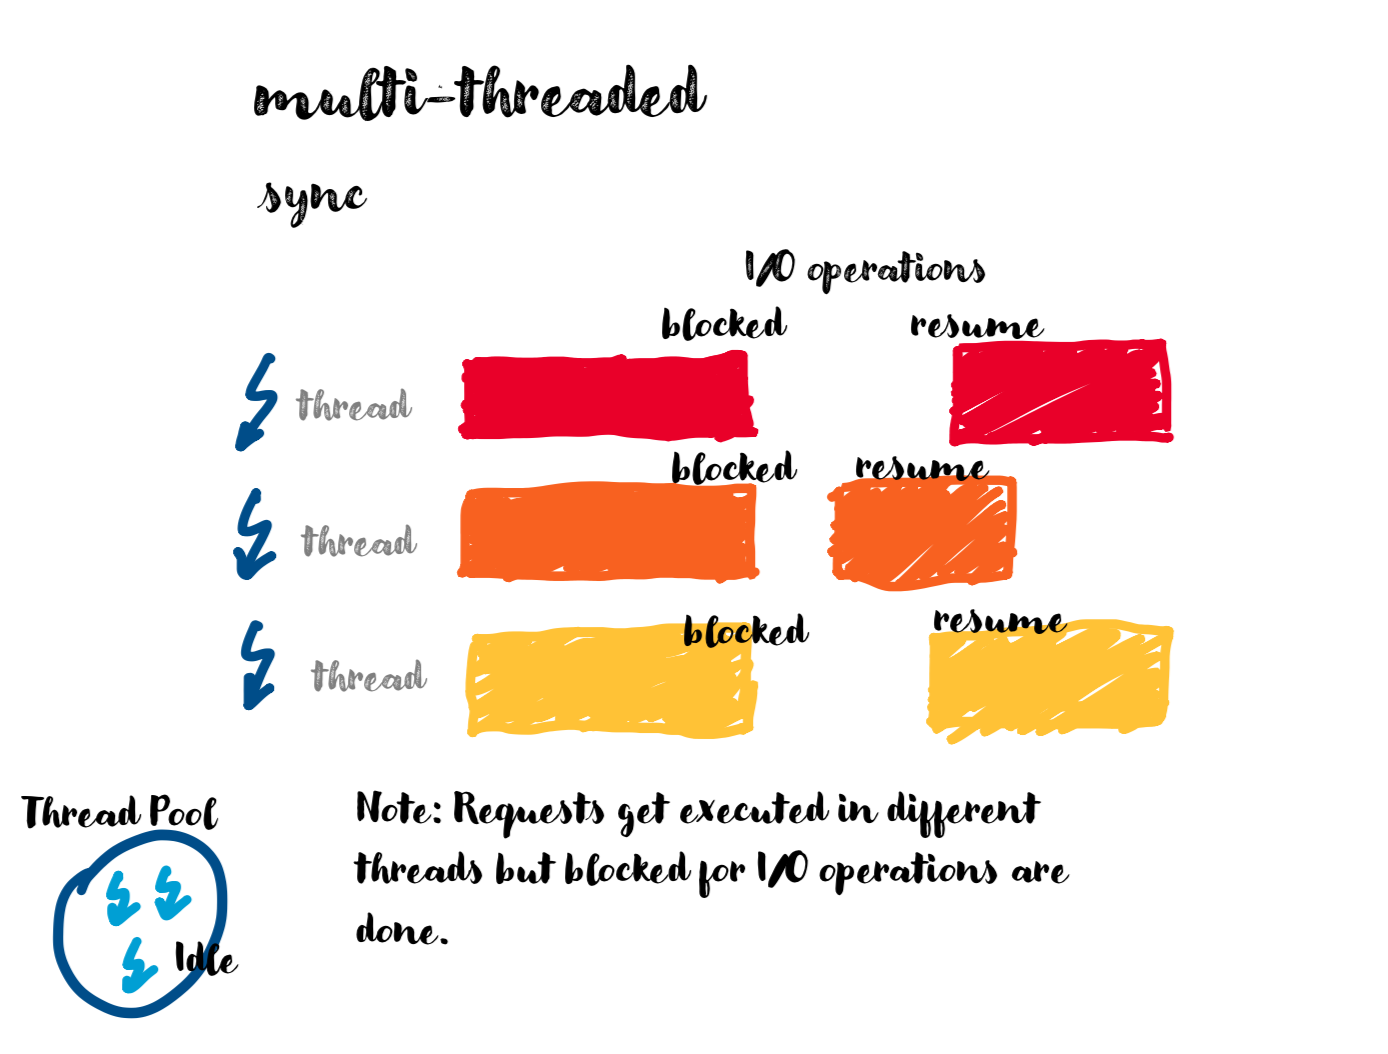 multi-threaded
sync
I/O operations
blocked resume
thread
blocked resume
thread
blocked resume
thread
Thread Pool
Idle
Note: Requests get executed in different
threads but blocked for I/O operations are
done.